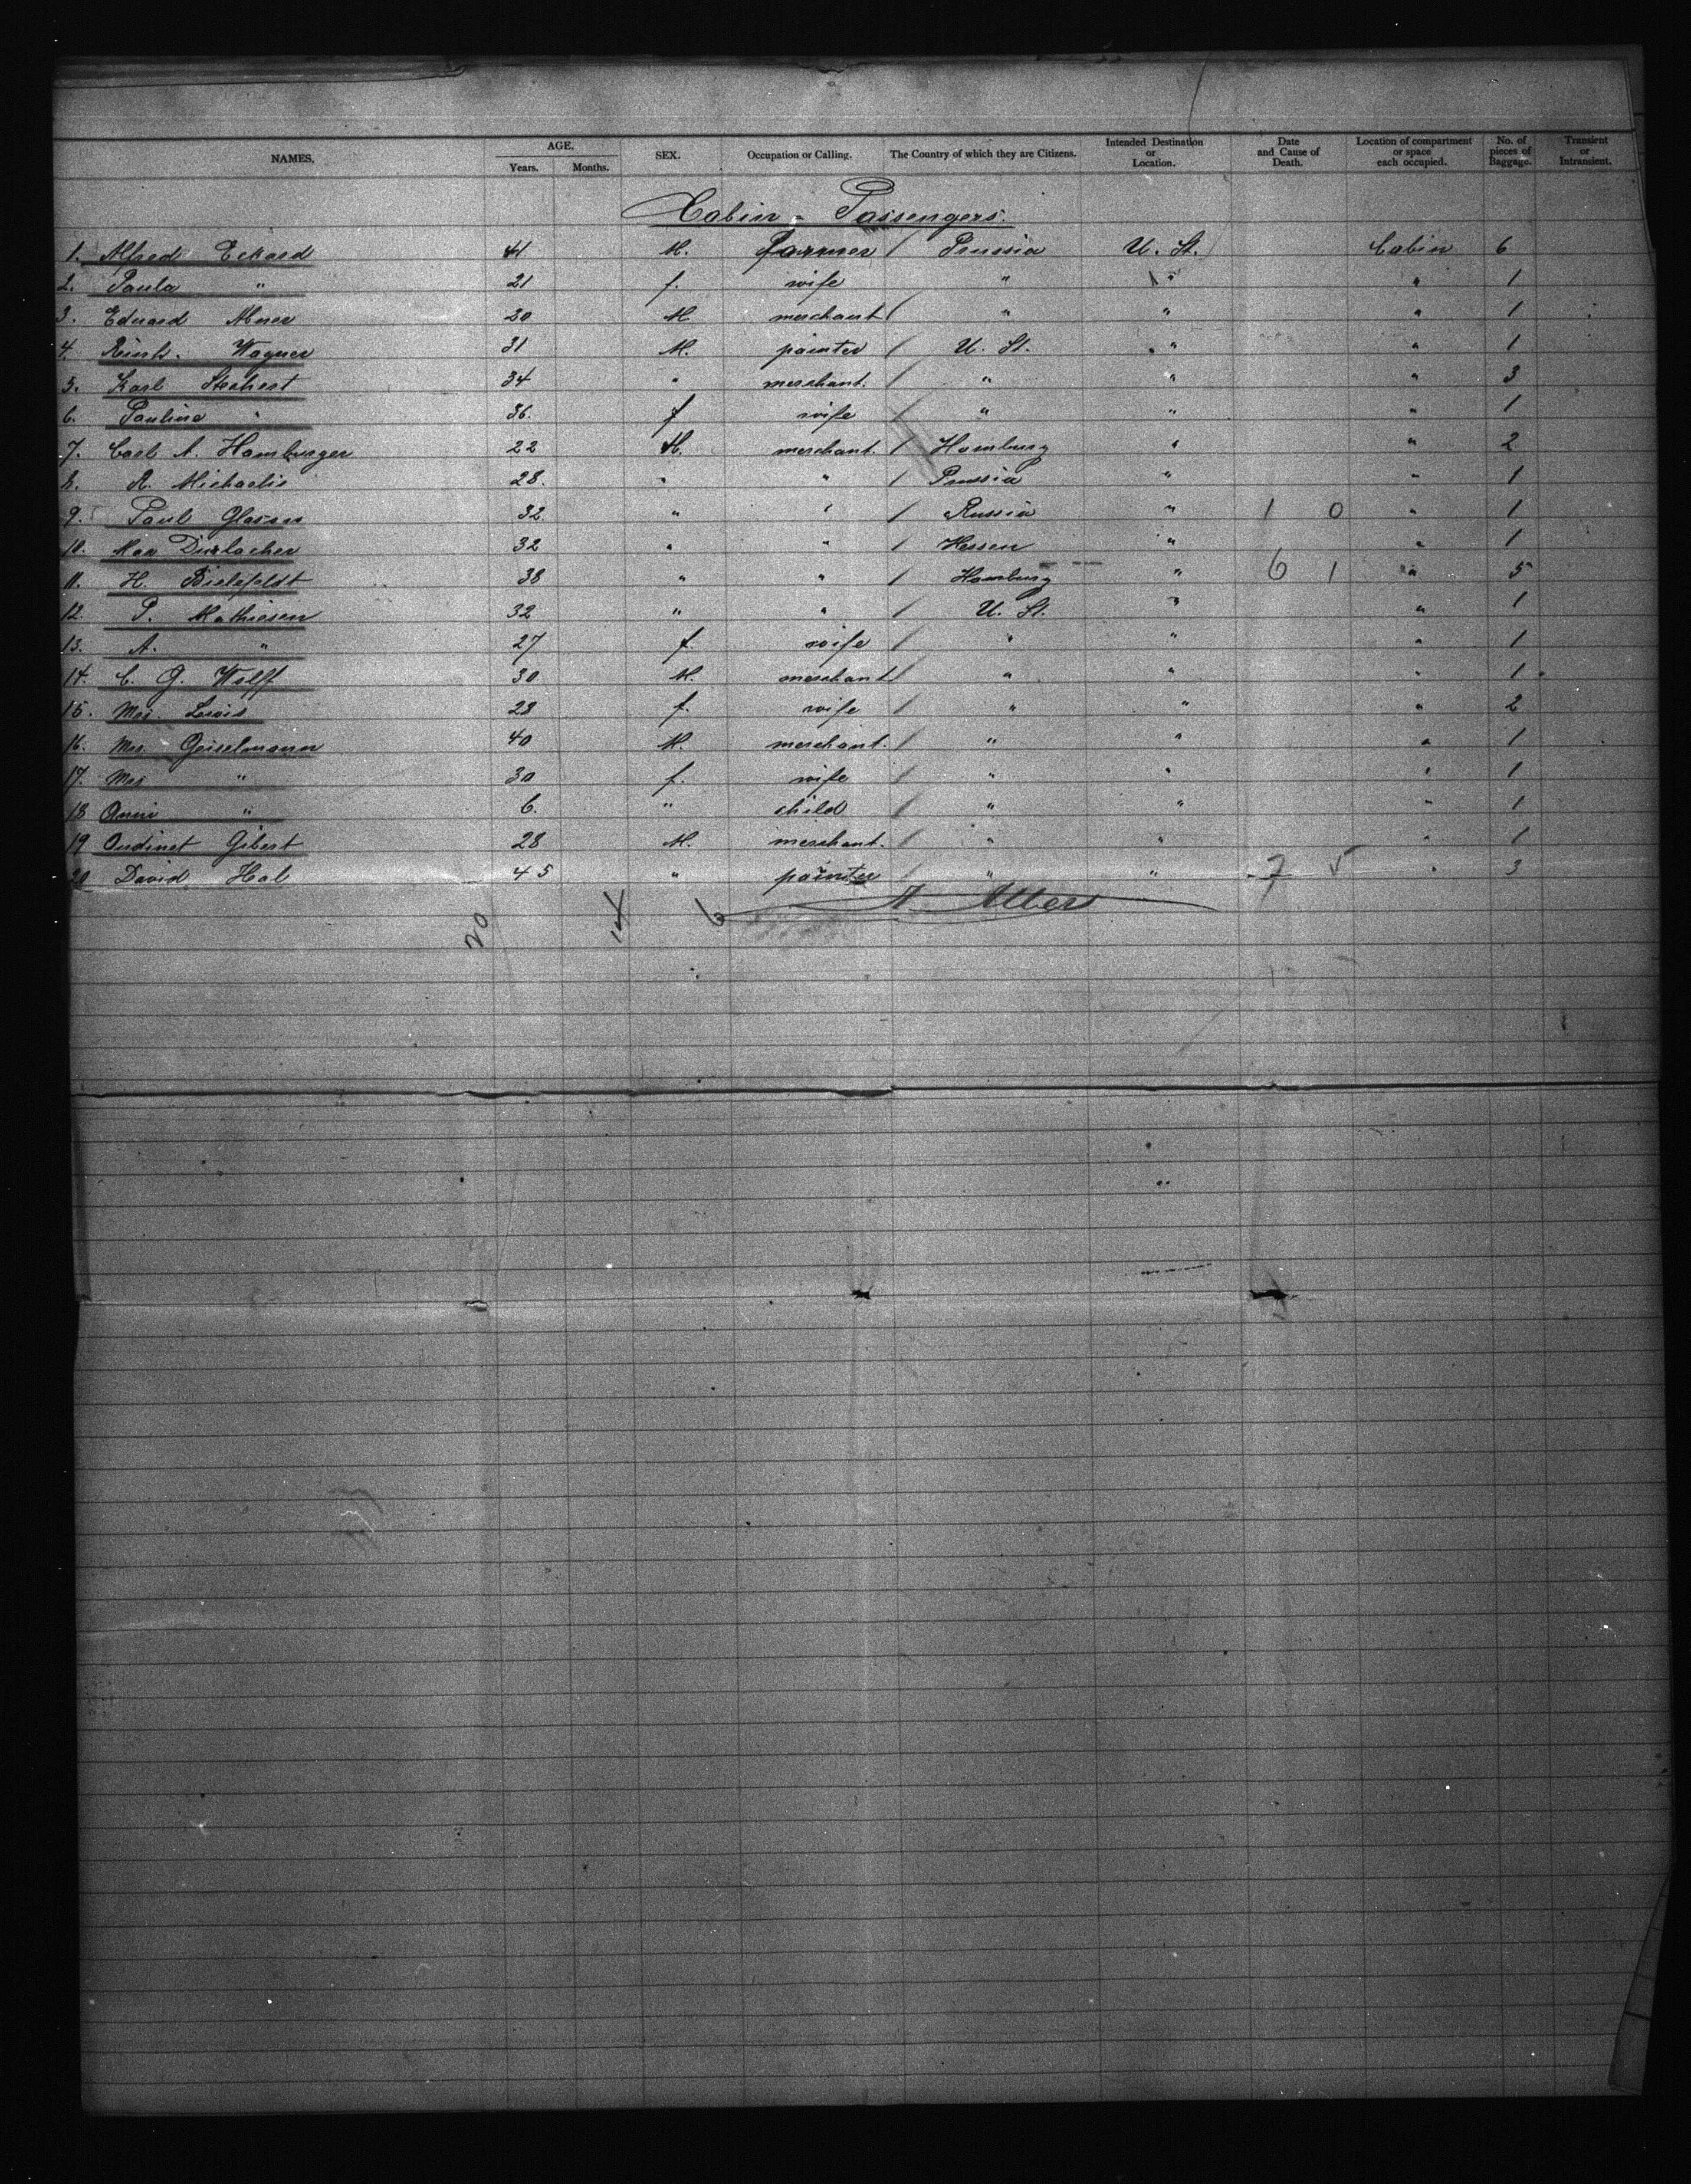 NAMES. AGE. Years. Months. SEX. Occupation or Calling. The Country of which they are Citizens. Intended Destination or Location. Date and Cause of Death. Location of compartment or space each occupied. No. of pieces of Baggage. Transient or Intransient.
Cabin - Passengers.
1. Alfred Eckard 41 M. Farmer / Prussia U. St. Cabin 6
2. Paula " 21 f. wife " " " 1
3. Eduard 20 M. merchant / " " " 1
4. Reinh. Wagner 31 M. painter / U. St. " " 1
5. Karl Stechert 34 " merchant. / " " " 3
6. Pauline " 36. f wife / " " " 1
7. Carl A. Hamburger 22 M. merchant. / Hamburg " " 2
8. R. Michaelis 28. " " / Prussia " " 1
9. Paul 32. " " / Russia " 1 0 " 1
10. Max Durlacher 32 " " / Hessen " " 1
11. H. Bielefeldt 38 " " / Hamburg " 6 1 " 5
12. P. Mathiesen 32 " " / U. St. " " 1
13. A. " 27 f wife / " " " 1
14. C. G. Wolff 30 M. merchant / " " " 1
15. Mrs. Lewis 28 f. wife / " " " 2
16. Mr. Geiselmann 40 M. merchant. / " " " 1
17. Mrs " 30 f. wife / " " " 1
18 Anni " 6. " child / " " " 1
19 Oudinet Gibert 28 M. merchant. / " " " 1
20 David Hal 45 " painter / " " 7 5 " 3
20 14 6 A. Albers